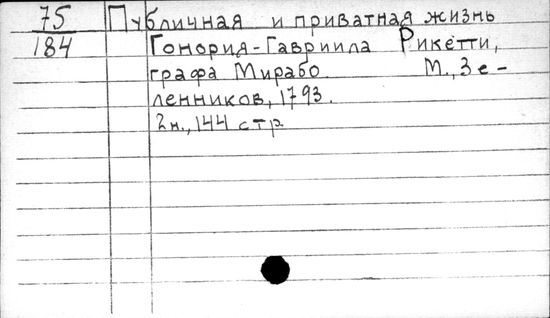 75 Публичная и приватная жизнь
184 Гонория-Гавриила Рикетти,
графа Мирабо. М., Зе-
ленников, 1793.
2н., 144 стр